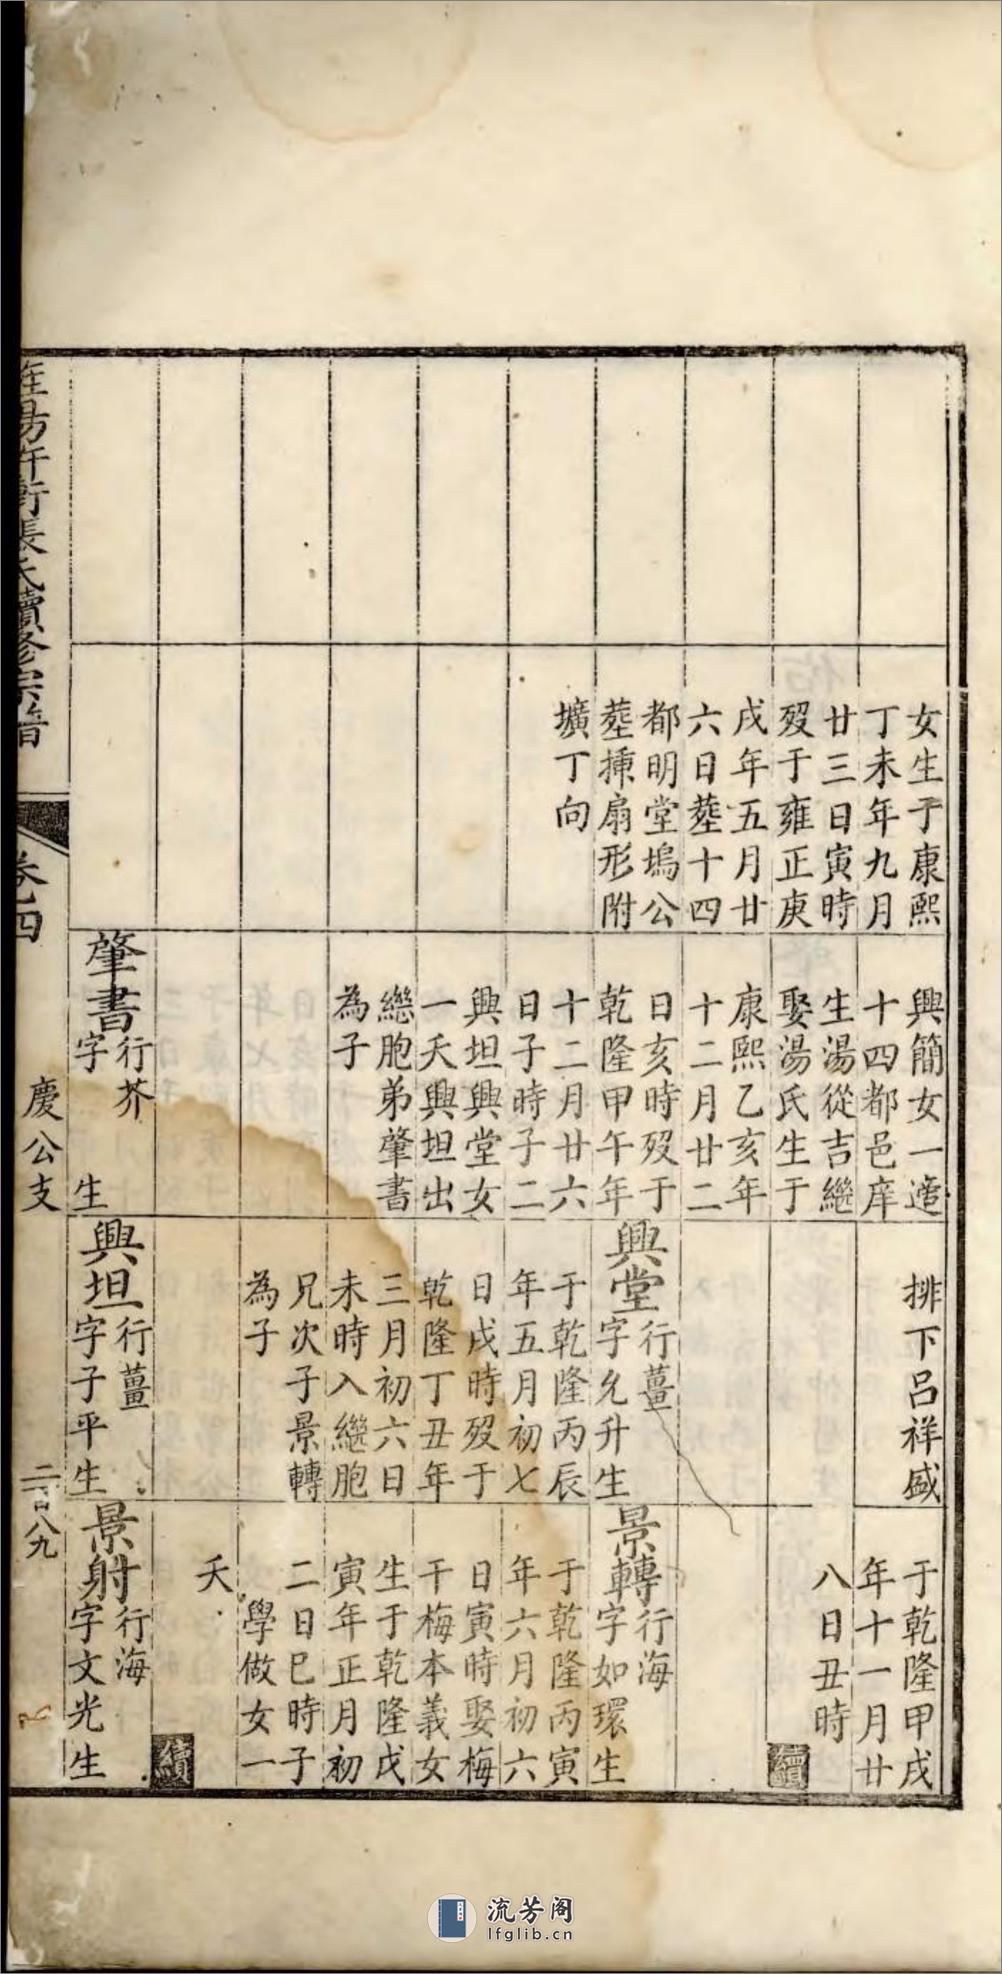 女生于康熙
丁未年九月
廿三日寅時
歿于雍正庚
戌年五月廿
六日塟十四
都明堂塢公
塟攇扇形附
壙丁向
興簡女一適
十四都邑庠
生湯從吉繼
娶湯氏生于
康熙乙亥年
十二月廿二
日亥時歿于
乾隆甲午年
十二月廿六
日子時子二
興坦興堂女
一夭興坦出
繼胞弟肇書
為子
肇書行芥
字 生
排下呂祥盛
興堂行薑
字允升生
于乾隆丙辰
年五月初七
日戌時歿于
乾隆丁丑年
三月初六日
未時入繼胞
兄次子景轉
為子
興坦行薑
字子平生
于乾隆甲戌
年十一月廿
八日丑時
續
景轉行海
字如環生
于乾隆丙寅
年六月初六
日寅時娶梅
干梅本義女
生于乾隆戊
寅年正月初
二日巳時子
學做女一
夭
續
景射行海
字文光生
旌陽許衙張氏續修宗譜
卷四
慶公支
二百八九
流芳阁
lfglib.cn